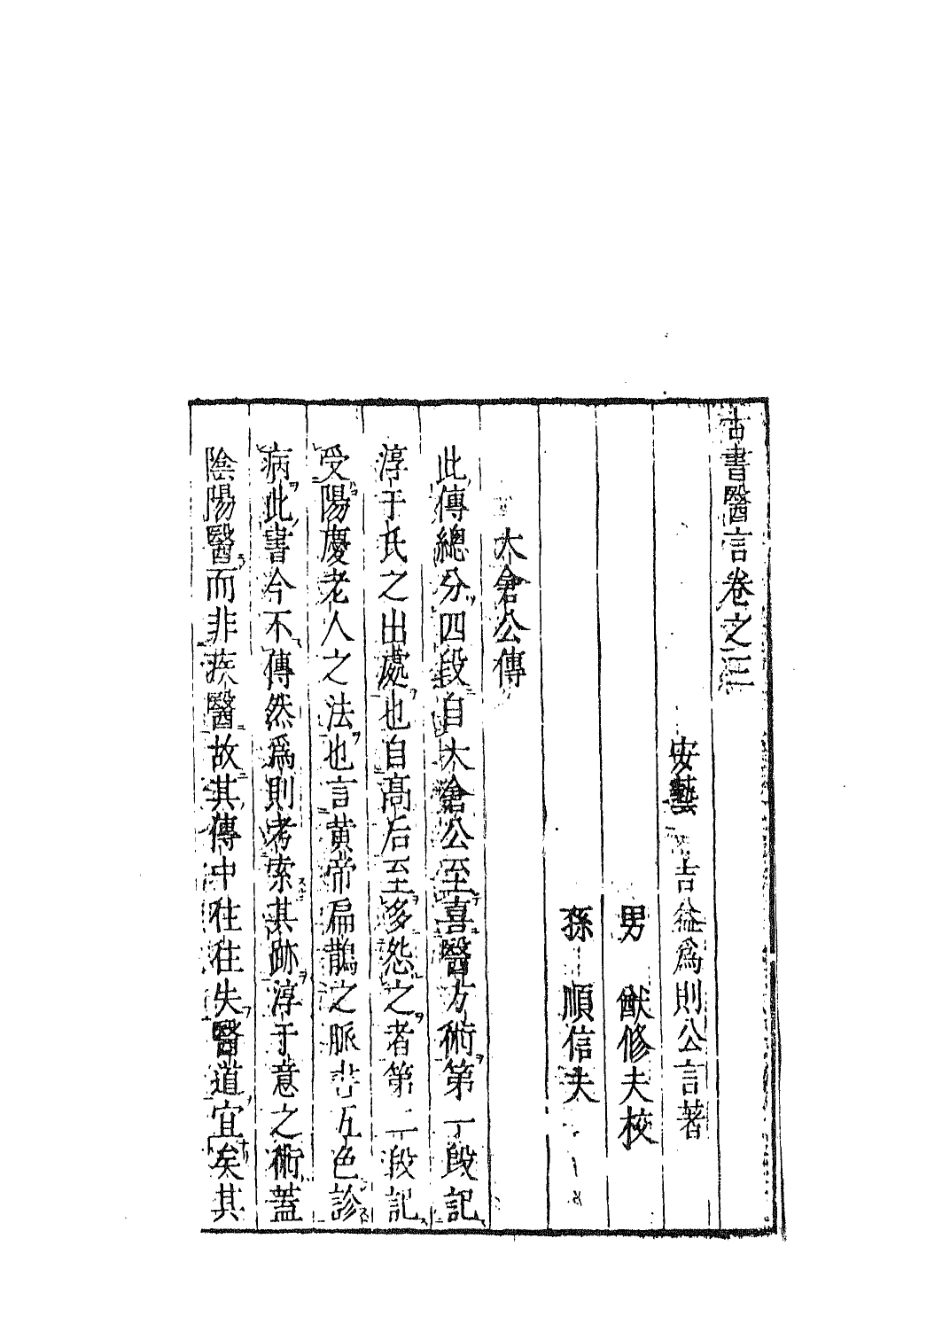 古書醫言卷之三
安藝 吉益爲則公言著
男 猷修夫校
孫 順信夫
大倉公傳
此傳總分四段自大倉公至喜醫方術第一段記
淳于氏之出處也自高后至多怨之者第二段記
受陽慶老人之法也言黄帝扁鵲之脈書五色診
病此書今不傳然爲則考索其跡淳于意之術蓋
陰陽醫而非疾醫故其傳中往往失醫道宜矣其